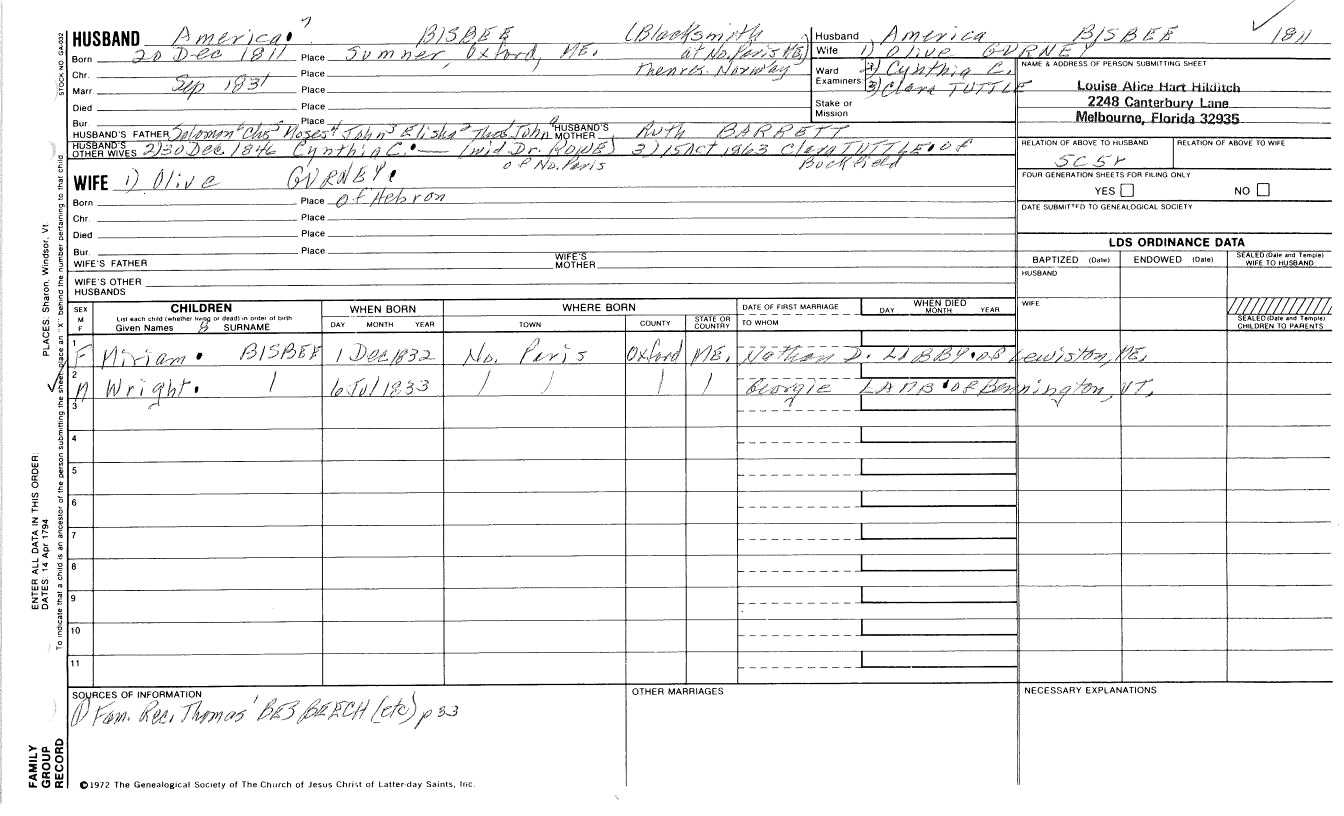 HUSBAND America 7 BISBEE (Blacksmith
Born 20 Dec 1811 Place Sumner, Oxford, ME. at No. Paris ME)
Chr. Place thenres. Norway
Marr. Sep 1831 Place
Died Place
Bur Place
HUSBAND'S FATHER Solomon Chs Moses John Elisha John HUSBAND'S MOTHER RUTH BARRETT
HUSBAND'S OTHER WIVES 2) 30 Dec 1846 Cynthia C. — (wid. Dr. ROWE) 3) 15 Oct 1863 Clara TUTTLE of
of No. Paris Buckfield
WIFE 1) Olive GURNEY
Born Place of Hebron
Chr. Place
Died Place
Bur. Place
WIFE'S FATHER WIFE'S MOTHER
WIFE'S OTHER HUSBANDS
Husband America BISBEE 1811
Wife 1) Olive GURNEY
Ward Examiners 2) Cynthia C.
3) Clara TUTTLE
Stake or Mission
NAME & ADDRESS OF PERSON SUBMITTING SHEET
Louise Alice Hart Hilditch
2248 Canterbury Lane
Melbourne, Florida 32935
RELATION OF ABOVE TO HUSBAND RELATION OF ABOVE TO WIFE
5C5r
FOUR GENERATION SHEETS FOR FILING ONLY
YES NO
DATE SUBMITTED TO GENEALOGICAL SOCIETY
LDS ORDINANCE DATA
BAPTIZED (Date) ENDOWED (Date) SEALED (Date and Temple) WIFE TO HUSBAND
HUSBAND
WIFE
SEALED (Date and Temple) CHILDREN TO PARENTS
SEX M F
CHILDREN
List each child (whether living or dead) in order of birth
Given Names & SURNAME
WHEN BORN
DAY MONTH YEAR
WHERE BORN
TOWN COUNTY STATE OR COUNTRY
DATE OF FIRST MARRIAGE
TO WHOM
WHEN DIED
DAY MONTH YEAR
1 F Miriam BISBEE 1 Dec 1832 No. Paris Oxford ME. Nathan D. LIBBY of Lewiston, ME.
2 M Wright 6 Jul 1833 Georgie LAMB of Bennington, VT.
3
4
5
6
7
8
9
10
11
SOURCES OF INFORMATION
1) Fam. Rec. Thomas BESBEECH (etc) p 33
OTHER MARRIAGES
NECESSARY EXPLANATIONS
©1972 The Genealogical Society of The Church of Jesus Christ of Latter-day Saints, Inc.
STOCK NO. GA-032
PLACES: Sharon, Windsor, Vt.
To indicate that a child is an ancestor of the person submitting the sheet, place an "X" behind the number pertaining to that child
ENTER ALL DATA IN THIS ORDER:
DATES: 14 Apr 1794
FAMILY
GROUP
RECORD